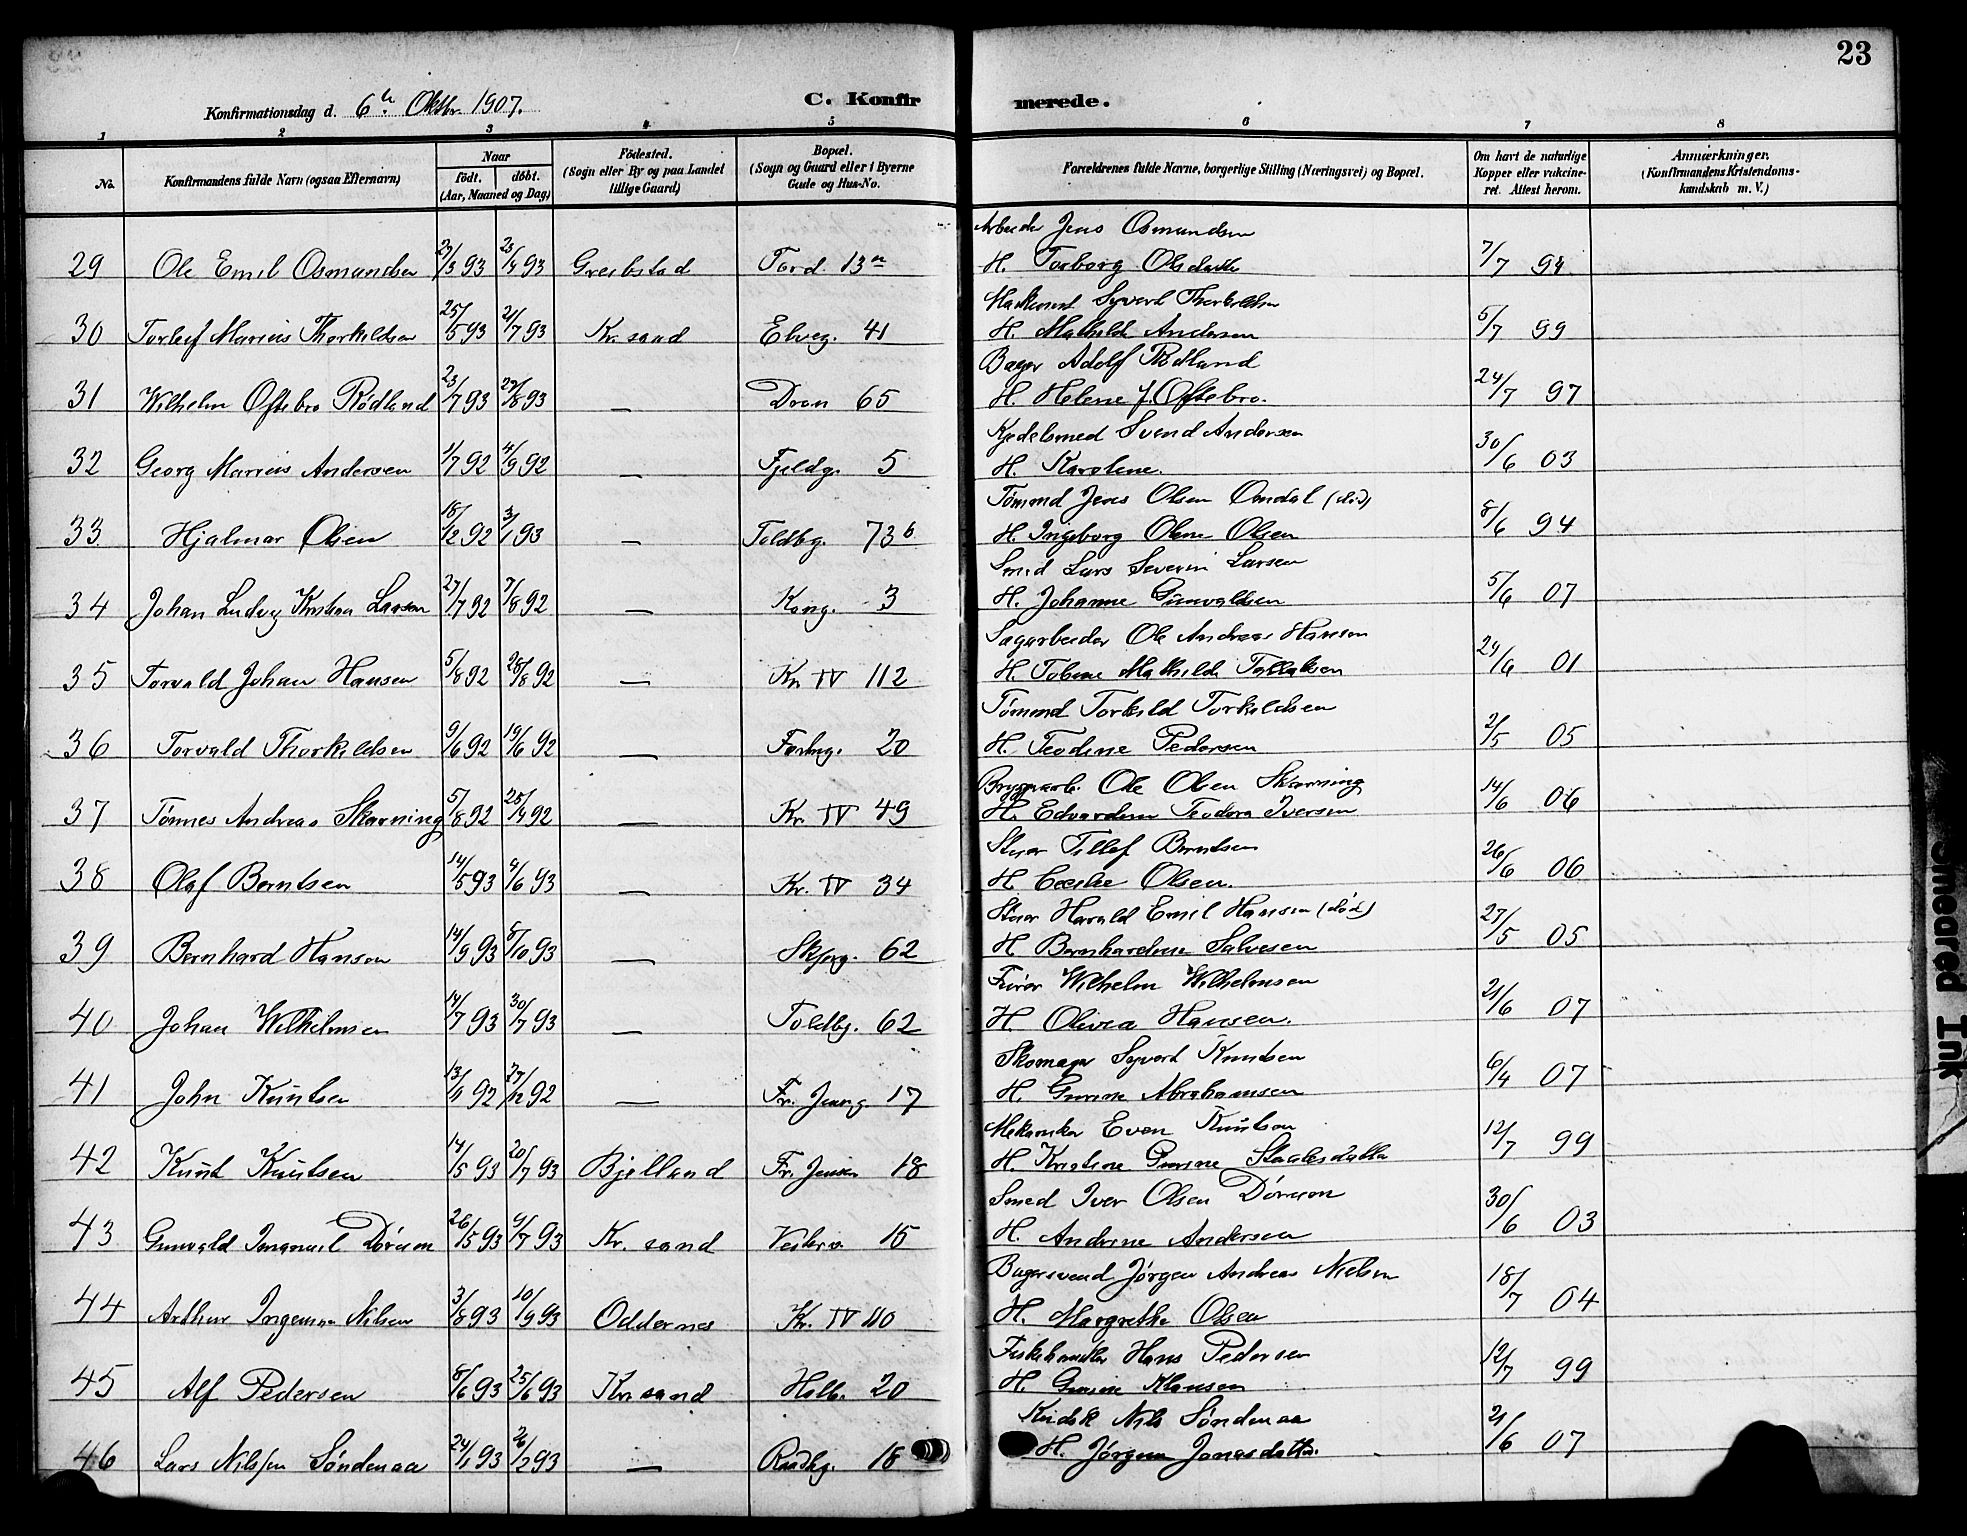 23
Konfirmationsdag d. 6te Oktbr. 1907.
C. Konfirmerede.
1 2 3 4 5 6 7 8
No.
Konfirmandens fulde Navn (ogsaa Efternavn)
Naar
født. døbt.
(Aar, Maaned og Dag)
Fødested.
(Sogn eller By og paa Landet
tillige Gaard)
Bopæl.
(Sogn og Gaard eller i Byerne
Gade og Hus-No.
Forældrenes fulde Navne, borgerlige Stilling (Næringsvei) og Bopæl.
Om havt de naturlige
Kopper eller vakcine-
ret. Attest herom.
Anmærkninger.
(Konfirmandens Kristendoms-
kundskab m. V.)
Arbeider Jens Osmundsen
29 Ole Emil Osmundsen 93 93 Greibstad 13 H. Torborg Olsdatter 7/7 94
Syvert Thorkildsen
30 Torleif Marius Thorkildsen 25/5 93 2/7 93 Kr. sand Elveg. 41 H. Mathilde Andersen 5/7 99
Bager Adolf Rødland
31 Wilhelm Oftebro Rødland 23/7 93 27/8 93 — Dron 65 H. Helene J. Oftebro. 24/7 97
Kjedelsmed Svend Andersen
32 Georg Marius Andersen 1/7 92 4/9 92 — Fjeldg. 5 H. Karoline. 30/6 03
Tømmd Jens Olsen Omdal (død)
33 Hjalmar Olsen 18/12 92 3/1 93 — Toldbg. 73b H. Ingeborg Olene Olsen 8/6 94
Smed Lars Severin Larsen
34 Johan Ludvig Kristian Larsen 27/7 92 7/8 92 — Kong. 3 H. Johanne Gunvaldsen 5/6 07
Sagarbeider Ole Andreas Hansen
35 Torvald Johan Hansen 5/8 92 28/8 92 — Kr. IV 112 H. Tobine Mathilde Tallaksen 24/6 01
Tømmd Torkild Torkildsen
36 Torvald Thorkildsen 9/6 92 19/6 92 — Festng. 20 H. Teodine Pedersen 2/5 05
Bryggearb. Ole Olsen Skarning
37 Tønnes Andreas Skarning 5/8 92 92 — Kr. IV 49 H. Edvardine Teodora Iversen 14/6 06
Stuer Tellef Berntsen
38 Olaf Berntsen 14/5 93 4/6 93 — Kr. IV 34 H. Olsen. 26/6 06
Stuer Harald Emil Hansen (død)
39 Bernhard Hansen 14/9 93 8/10 93 — Skjprg. 62 H Bernhardine Salvesen 27/5 05
Wilhelm Wilhelmsen
40 Johan Wilhelmsen 14/7 93 30/7 93 — Toldbg. 62 H. Olivia Hansen. 21/6 07
Skomager Syvert Knudsen
41 John Knutsen 92 27/12 92 — Fr. Jensg. 17 H. Gunine Abrahamsen 6/4 07
Mekaniker Even Knutsen
42 Knut Knutsen 14/5 93 20/7 93 Bjelland Fr. Jensen 18 H. Kristine Gurine 12/7 99
Smed Iver Olsen Døresen
43 Gunvald Imanuel Døresen 26/5 93 9/7 93 Kr. sand Vesterv. 15 H. Andrine Andersen 30/6 03
Bagersvend Jørgen Andreas Nielsen
44 Arthur Ingeman Nilsen 3/8 93 10/9 93 Oddernes Kr. IV 110 H. Margrethe Olsen 18/7 04
Fiskehandler Hans Pedersen
45 Alf Pedersen 8/6 93 25/6 93 Kr. sand Holb. 20 H. Gunine Klausen 12/7 99
Kudsk Nils Søndenaa
46 Lars Nilssen Søndenaa 24/1 93 26/2 93 — Raadhg. 18 H. Jørgine Jonasdatter. 21/6 07
Smeared Ink